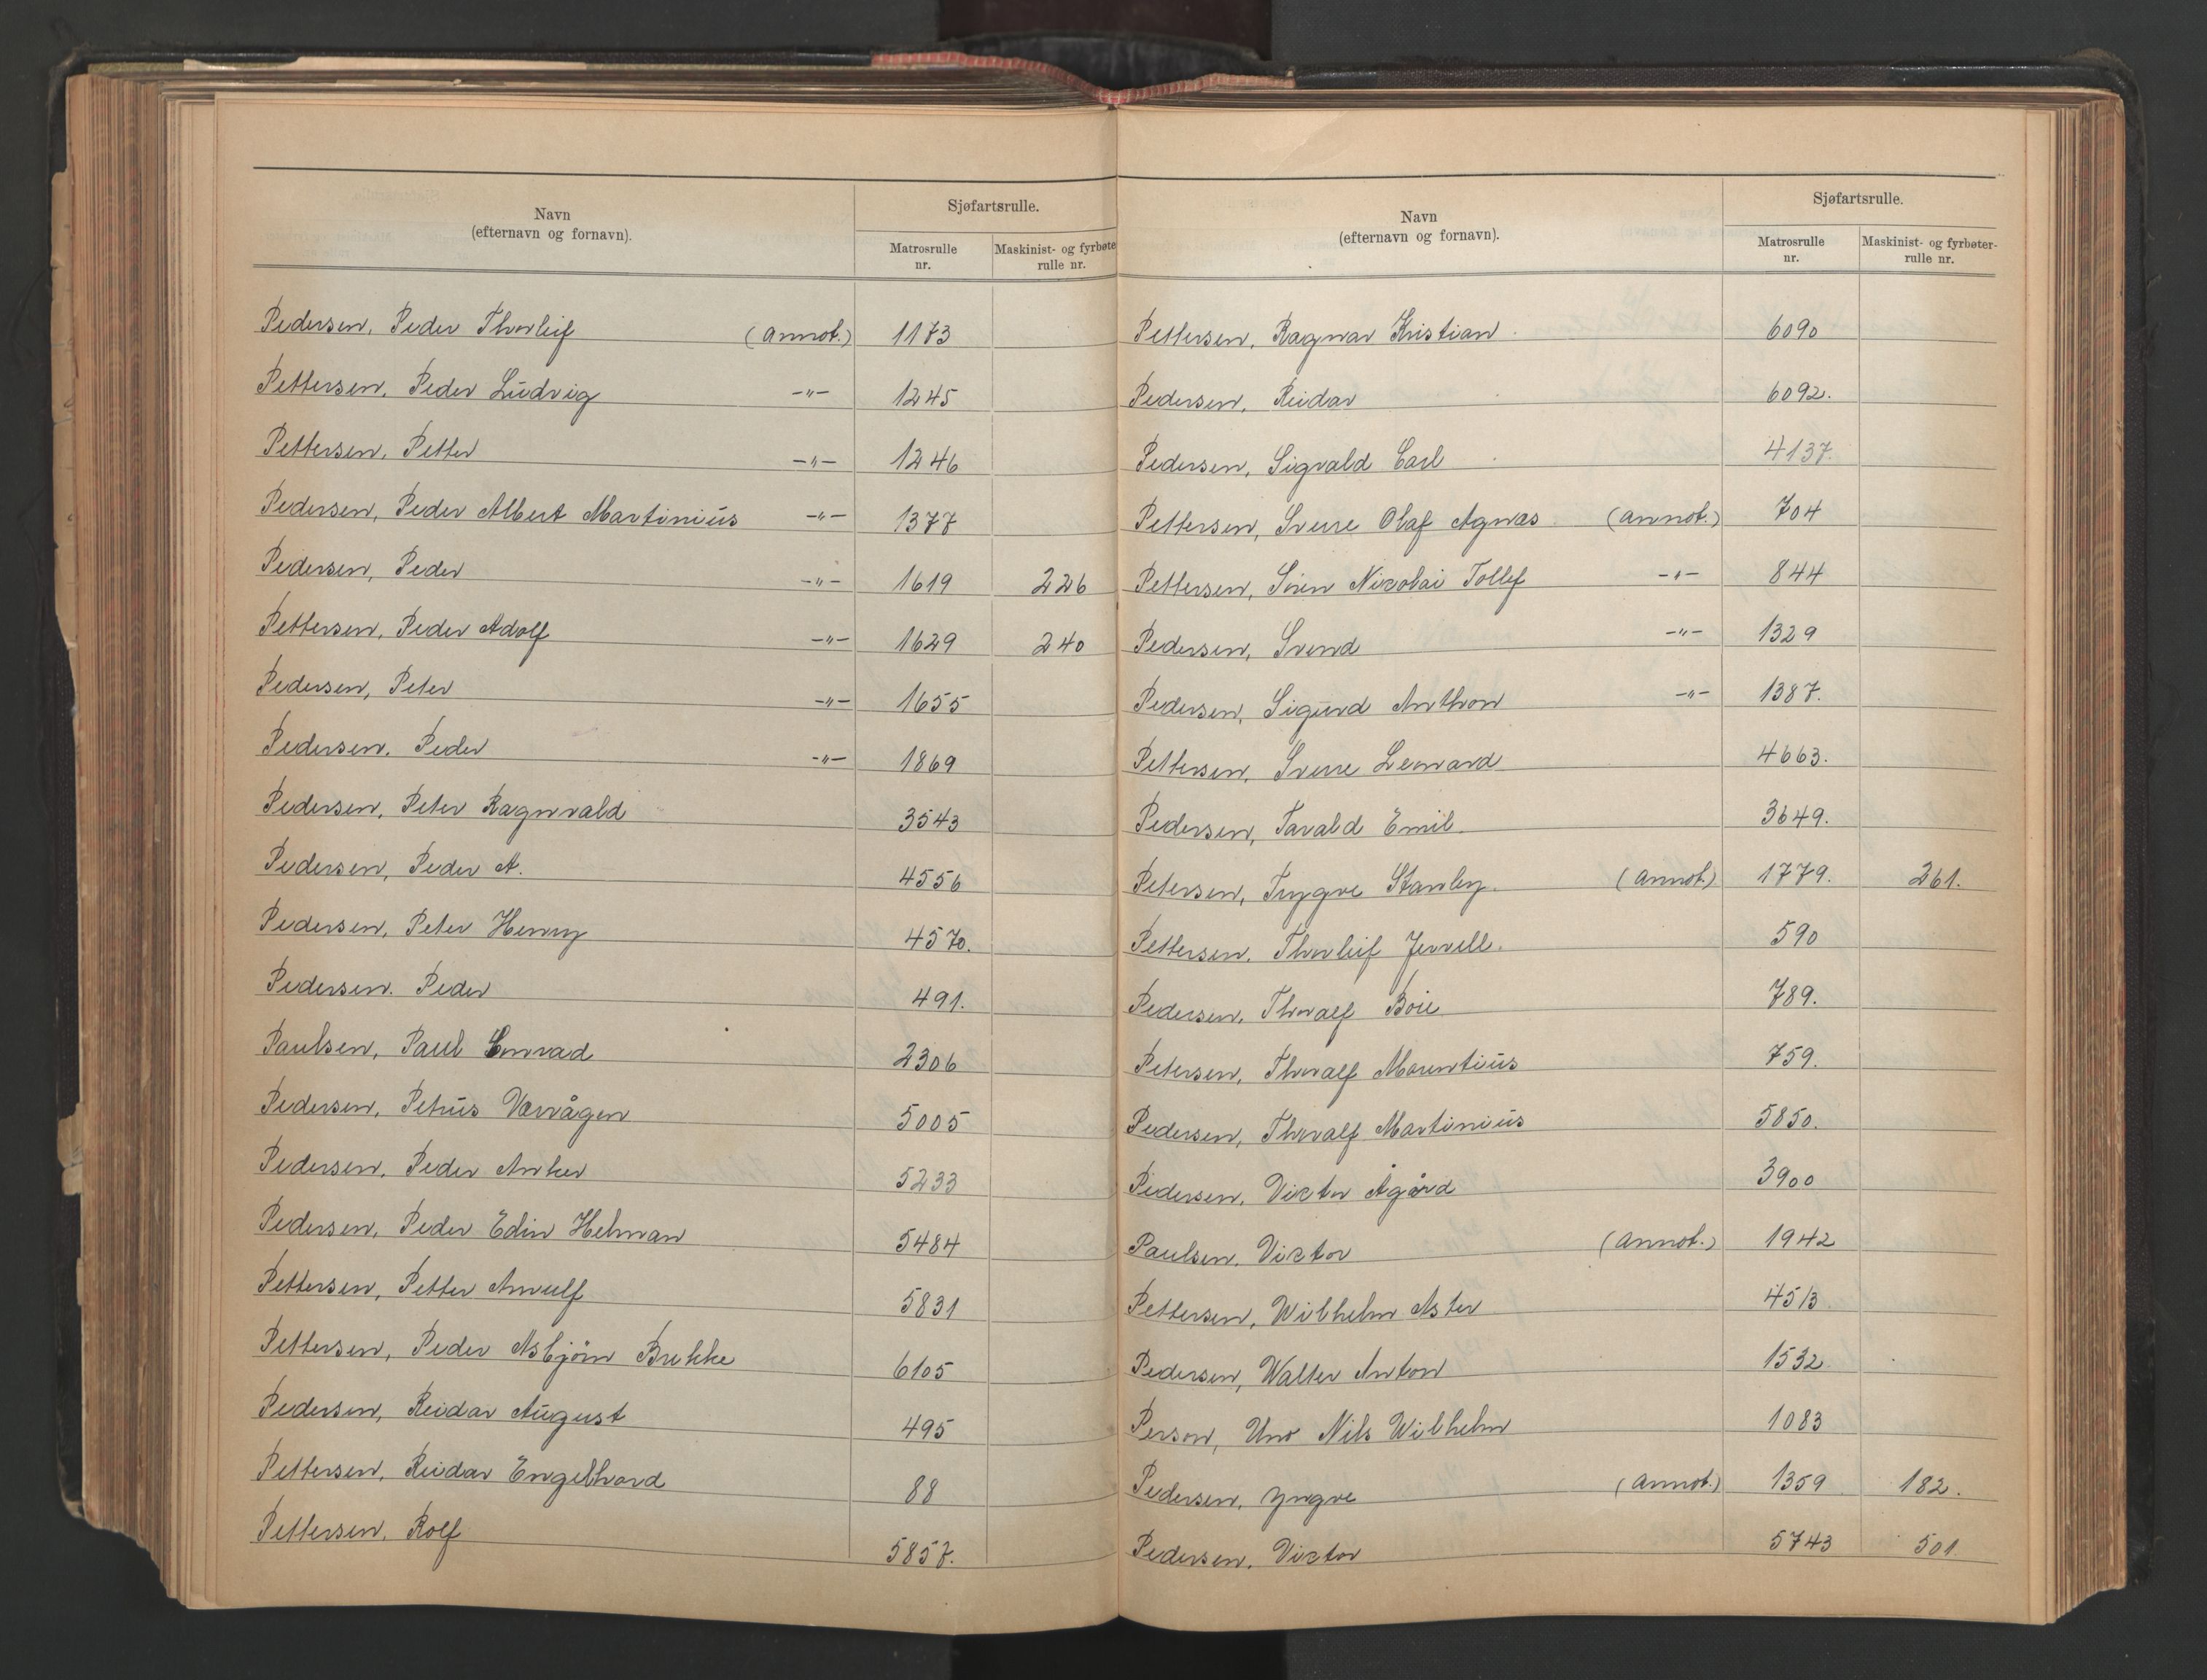 Navn
(efternavn og fornavn).
Sjøfartsrulle.
Matrosrulle nr.
Maskinist- og fyrbøte
rulle nr.
Pedersen, Peder Thorleif (annot.) 1173
Pettersen, Peder Ludvig -"- 1245
Pettersen, Petter -"- 1246
Pedersen, Peder Albert Martinius -"- 1377
Pedersen, Peder -"- 1619 226
Pettersen, Peder Adolf -"- 1629 240
Pedersen, Peter -"- 1655
Pedersen, Peder -"- 1869
Pedersen, Peter Ragnvald 3543
Pedersen, Peder A. 4556
Pedersen, Peter Henry 4570.
Pedersen. Peder 491.
Paulsen, Paul Conrad 2306
Pedersen, Petrus Værvågen 5005
Pedersen, Peder Anker 5233
Pedersen, Peder Edin Helman 5484
Pettersen, Petter Arnulf 5831
Pettersen, Peder Asbjörn Brekke 6105
Pedersen, Reidar August 495
Pettersen, Reidar Engelhard 88
Pettersen, Rolf 5857.
Navn
(efternavn og fornavn).
Sjøfartsrulle.
Matrosrulle nr.
Maskinist- og fyrbøter-
rulle nr.
Pettersen, Ragnar Kristian 6090
Pedersen, Reidar 6092.
Pedersen, Sigvald Carl 4137.
Pettersen, Sverre Olaf Agnæs (annot.) 704
Pettersen, Sören Nikolai Tollef -"- 844
Pedersen, Svend -"- 1329
Pedersen, Sigurd Anthon -"- 1387.
Pettersen, Sverre Leonard 4663.
Pedersen, Tarald Emil. 3649.
Petersen, Trygve Stanley. (annot.) 1779. 261.
Pettersen, Thorleif Jervell. 590
Pedersen, Thoralf Boie 789.
Petersen, Thoralf Marentius 759.
Pedersen, Thoralf Martinius 5850.
Pedersen, Victor Ågård 3900
Paulsen, Victor (annot.) 1942
Pettersen, Wilhelm Aster 4513
Pedersen, Walter Anton 1532
Person, Uno Nils Wilhelm 1083
Pedersen, Yngve (annot.) 1359 182.
Pedersen, Victor 5743 501.